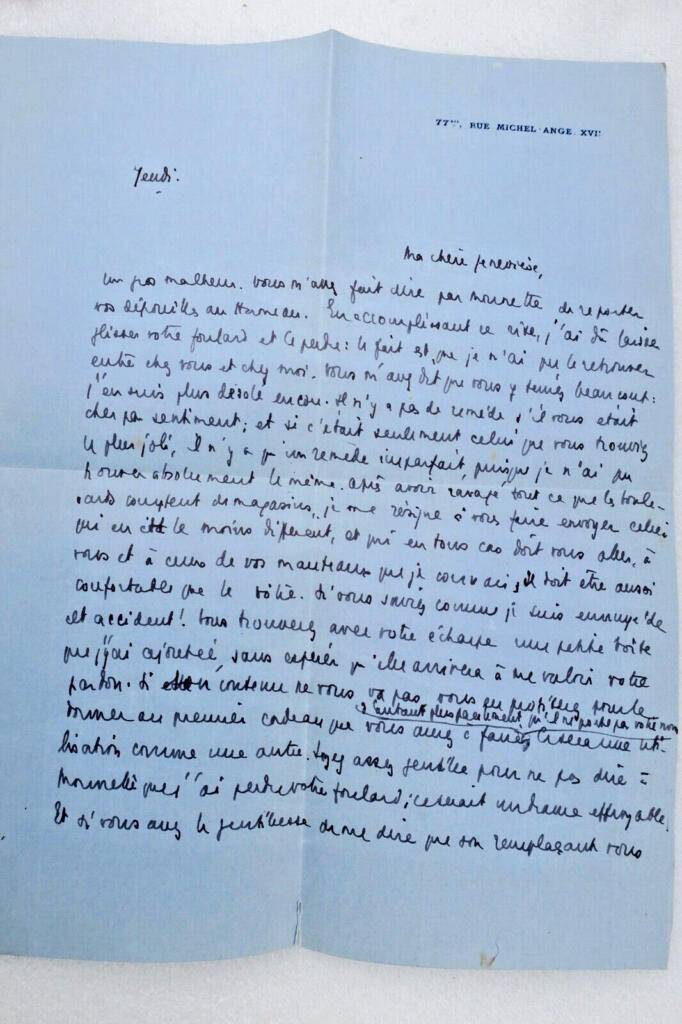 77bis, RUE MICHEL-ANGE. XVIe
Jeudi.
Ma chère Geneviève,
Un gros malheur. Vous m'avez fait dire par Mounette de reporter
vos dépouilles au Hameau. En accomplissant ce rite, j'ai dû laisser
glisser votre foulard et le perdre : le fait est que je n'ai pu le retrouver
entre chez vous et chez moi. Vous m'avez dit que vous y teniez beaucoup :
j'en suis plus désolé encore. Il n'y a pas de remède s'il vous était
cher par sentiment ; et si c'était seulement celui que vous trouviez
le plus joli, il n'y a qu'un remède imparfait, puisque je n'ai pu
trouver absolument le même. Après avoir ravagé tout ce que les boule-
vards comptent de magasins, je me résigne à vous faire envoyer celui
qui en était le moins différent, et qui en tous cas doit vous aller, à
vous et à ceux de vos manteaux que je connais ; il doit être aussi
confortable que le vôtre. Si vous saviez comme je suis ennuyé de
cet accident ! Vous trouverez avec votre écharpe une petite boîte
que j'y ai ajoutée, sans espérer qu'elle arrivera à me valoir votre
pardon. Si contenu ne vous va pas, vous en profiterez pour le
d'autant plus facilement qu'il ne porte pas votre nom
donner au premier cadeau que vous aurez à faire. Ce sera une uti-
lisation comme une autre. Soyez assez gentille pour ne pas dire à
Mounette que j'ai perdu votre foulard ; ce serait un drame effroyable.
Et si vous avez la gentillesse de me dire que son remplaçant vous